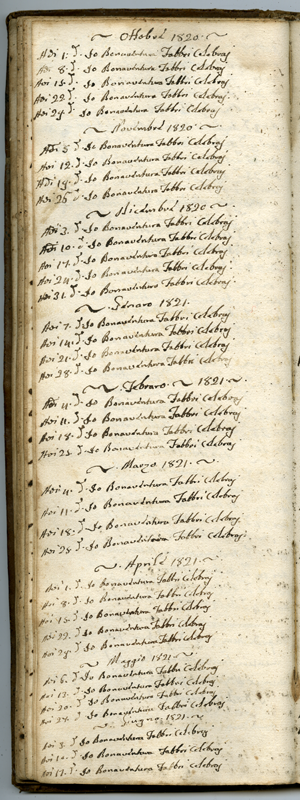 ~ Ottobre 1820 ~
Adi 1. d.o Io Bonaventura Fabbri Celebraj
Adi 8. d.o Io Bonaventura Fabbri Celebraj
Adi 15. d.o Io Bonaventura Fabbri Celebraj
Adi 22. d.o Io Bonaventura Fabbri Celebraj
Adi 29. d.o Io Bonaventura Fabbri Celebraj
~ Novembre 1820 ~
Adi 5. d.o Io Bonaventura Fabbri Celebraj
Adi 12. d.o Io Bonaventura Fabbri Celebraj
Adi 19. d.o Io Bonaventura Fabbri Celebraj
Adi 26. d.o Io Bonaventura Fabbri Celebraj
~ Dicembre 1820 ~
Adi 3. d.o Io Bonaventura Fabbri Celebraj
Adi 10. d.o Io Bonaventura Fabbri Celebraj
Adi 17. d.o Io Bonaventura Fabbri Celebraj
Adi 24. d.o Io Bonaventura Fabbri Celebraj
Adi 31. d.o Io Bonaventura Fabbri Celebraj
~ Genaro 1821.
Adi 7. d.o Io Bonaventura Fabbri Celebraj
Adi 14. d.o Io Bonaventura Fabbri Celebraj
Adi 21. d.o Io Bonaventura Fabbri Celebraj
Adi 28. d.o Io Bonaventura Fabbri Celebraj
~ Febraro ~ 1821 ~
Adi 4. d.o Io Bonaventura Fabbri Celebraj
Adi 11. d.o Io Bonaventura Fabbri Celebraj
Adi 18. d.o Io Bonaventura Fabbri Celebraj
Adi 25. d.o Io Bonaventura Fabbri Celebraj
~ Marzo 1821. ~
Adi 4. d.o Io Bonaventura Fabbri Celebraj
Adi 11. d.o Io Bonaventura Fabbri Celebraj
Adi 18. d.o Io Bonaventura Fabbri Celebraj
Adi 25. d.o Io Bonaventura Fabbri Celebraj
~ Aprile 1821. ~
Adi 1. d.o Io Bonaventura Fabbri Celebraj
Adi 8. d.o Io Bonaventura Fabbri Celebraj
Adi 15. d.o Io Bonaventura Fabbri Celebraj
Adi 22. d.o Io Bonaventura Fabbri Celebraj
Adi 29. d.o Io Bonaventura Fabbri Celebraj
~ Maggio 1821 ~
Adi 6. d.o Io Bonaventura Fabbri Celebraj
Adi 13. d.o Io Bonaventura Fabbri Celebraj
Adi 20. d.o Io Bonaventura Fabbri Celebraj
Adi 27. d.o Io Bonaventura Fabbri Celebraj
~ Giugno 1821. ~
Adi 3. d.o Io Bonaventura Fabbri Celebraj
Adi 10. d.o Io Bonaventura Fabbri Celebraj
Adi 17. d.o Io Bonaventura Fabbri Celebraj